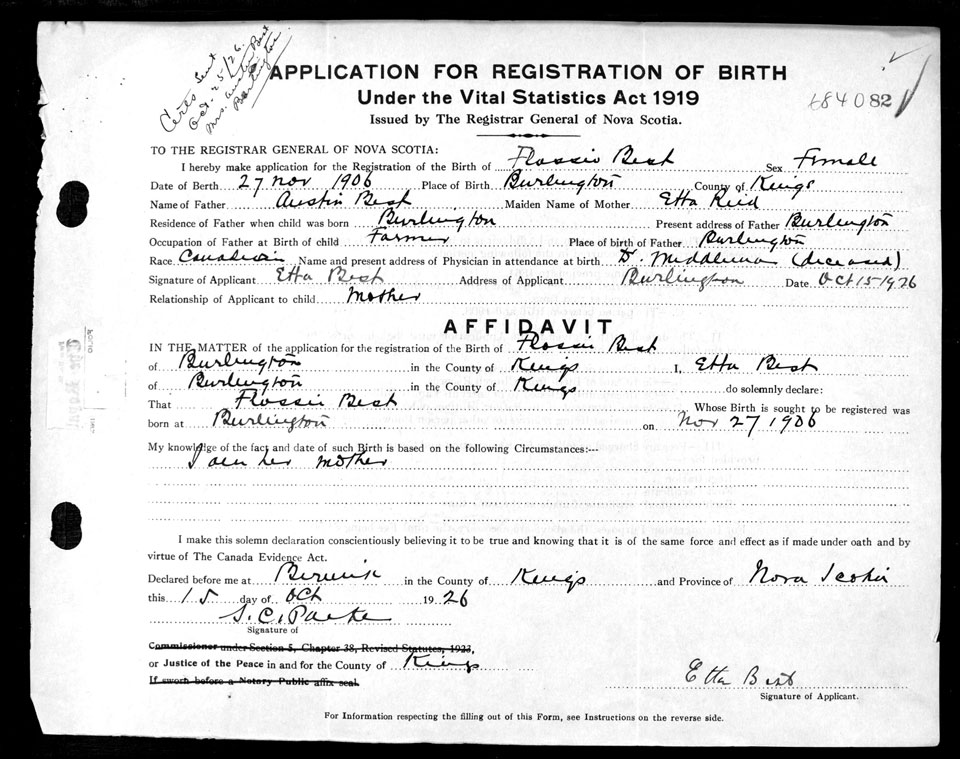 Certs Sent
Oct. 25/26.
Mrs. Austin Best
Burlington
APPLICATION FOR REGISTRATION OF BIRTH
Under the Vital Statistics Act 1919
Issued by The Registrar General of Nova Scotia.
684082
TO THE REGISTRAR GENERAL OF NOVA SCOTIA:
I hereby make application for the Registration of the Birth of Flossie Best Sex Female
Date of Birth 27 Nov 1906 Place of Birth Burlington County of Kings
Name of Father Austin Best Maiden Name of Mother Etta Reid
Residence of Father when child was born Burlington Present address of Father Burlington
Occupation of Father at Birth of child Farmer Place of birth of Father Burlington
Race Canadian Name and present address of Physician in attendance at birth Dr. (deceased)
Signature of Applicant Etta Best Address of Applicant Burlington Date Oct 15 1926
Relationship of Applicant to child Mother
AFFIDAVIT
IN THE MATTER of the application for the registration of the Birth of Flossie Best
of Burlington in the County of Kings I, Etta Best
of Burlington in the County of Kings do solemnly declare:
That Flossie Best Whose Birth is sought to be registered was
born at Burlington on Nov 27 1906
My knowledge of the fact and date of such Birth is based on the following Circumstances:---
I am her mother
I make this solemn declaration conscientiously believing it to be true and knowing that it is of the same force and effect as if made under oath and by
virtue of The Canada Evidence Act.
Declared before me at Berwick in the County of Kings and Province of Nova Scotia
this 15 day of Oct 1926
S. C. Parker
Signature of
Commissioner under Section 5, Chapter 38, Revised Statutes, 1923,
or Justice of the Peace in and for the County of Kings
If sworn before a Notary Public affix seal.
Etta Best
Signature of Applicant.
For Information respecting the filling out of this Form, see Instructions on the reverse side.